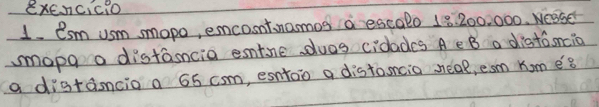 Exercício
1- Em um mapa, encontramos a escala 1:200.000. Nesse
mapa a distância entre duas cidades A e B a distância
a distância a 65 cm, então a distancia real, em Km é: